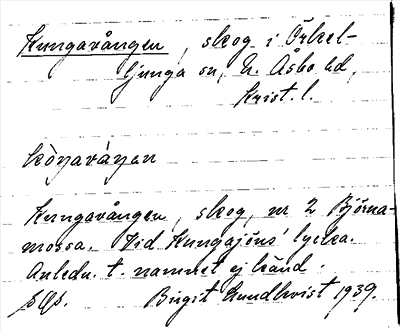 Kungavången, skog i Örkel-
ljunga sn, N. Åsbo hd,
Krist. l.
kòŋavàŋən
Kungavången, skog, nr 2 Björna-
mossa. Vid Kungajöns' lycka.
Anledn. t. namnet ej känd.
Birgit Lundkvist 1939.